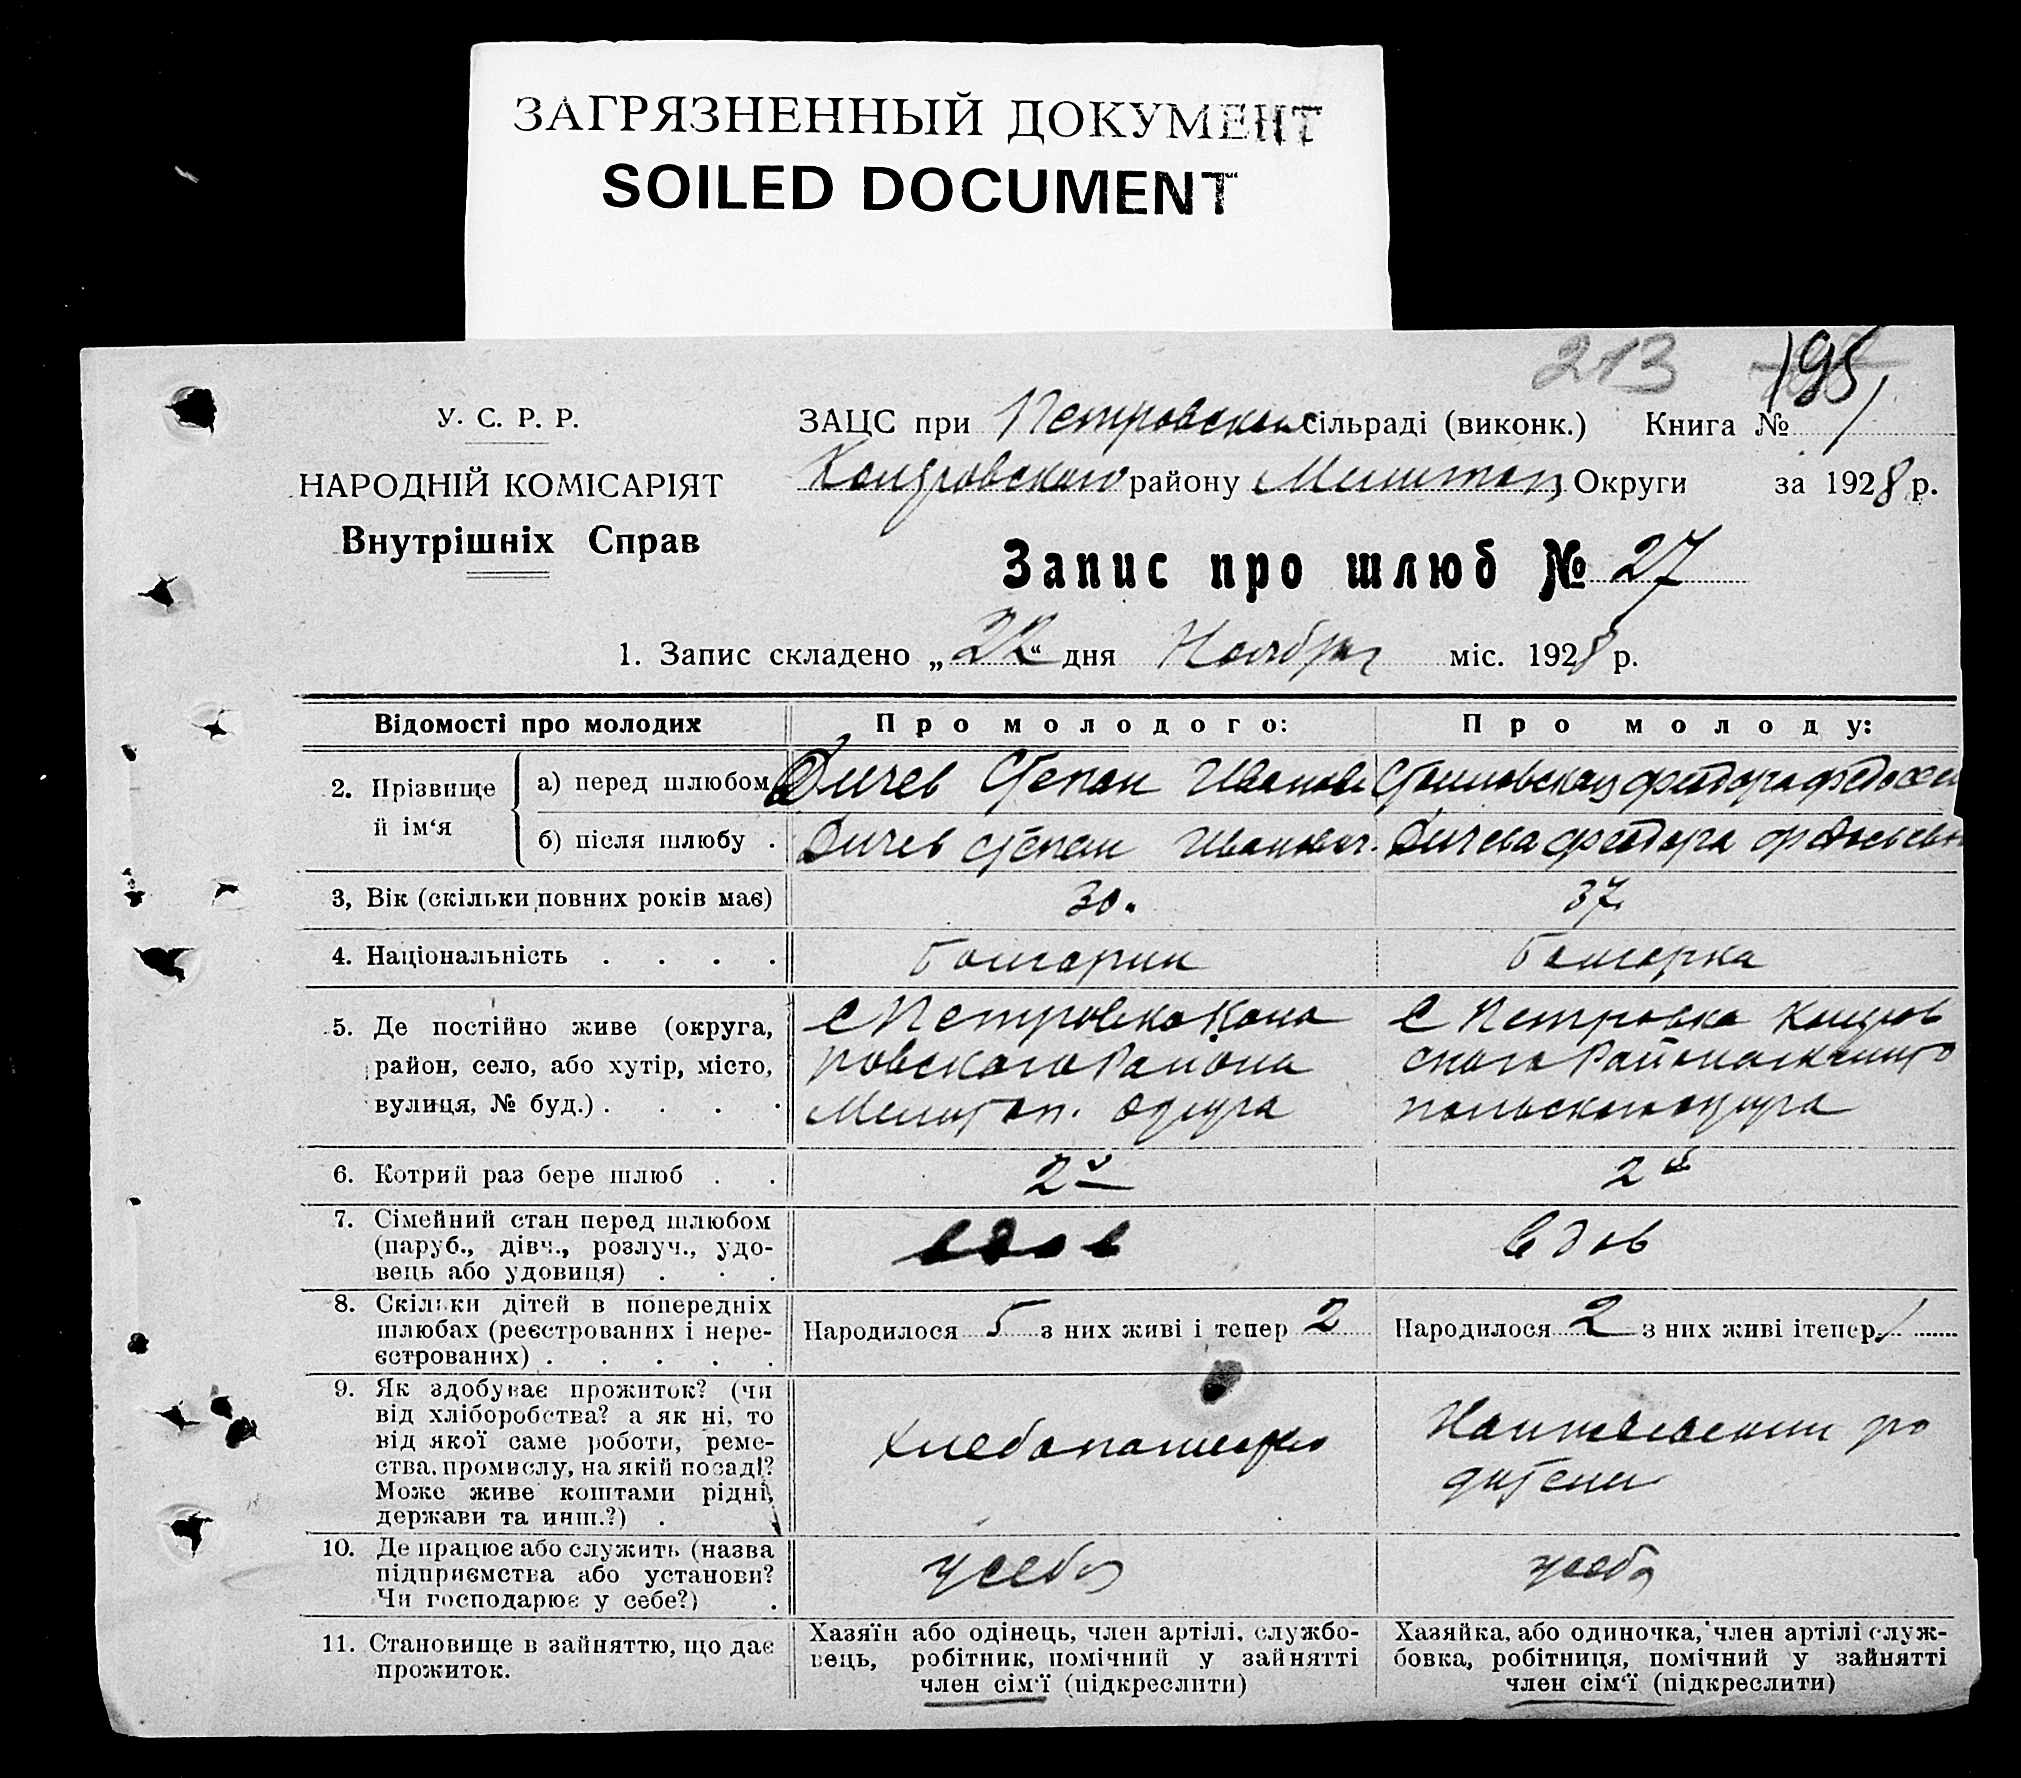 ЗАГРЯЗНЕННЫЙ ДОКУМЕНТ
SOILED DOCUMENT
213 195
У. С. Р. Р.
НАРОДНІЙ КОМІСАРІЯТ
Внутрішніх Справ
ЗАЦС при Петровском сільраді (виконк.) Книга № 1
району Мелитоп Округи за 1928 р.
Запис про шлюб № 27
1. Запис складено „22“ дня Ноября міс. 1928 р.
Відомості про молодих Про молодого: Про молоду:
2. Прізвище й ім‘я
а) перед шлюбом Дичев Степан
б) після шлюбу . Дичев Степан Иванович. Дичева
3, Вік (скільки повних років має) 30. 37.
4. Національність . . . . болгарин болгарка
5. Де постійно живе (округа, район, село, або хутір, місто, вулиця, № буд.) . . . .
с Петровка
ровского Района
Мелитоп. округа
с Петровка Кондров
ского Района Мелито
польского округа
6. Котрий раз бере шлюб . . 2й 2й
7. Сімейний стан перед шлюбом
(паруб., дівч., розлуч., удо-
вець або удовиця) . . . вдов вдов
8. Скільки дітей в попередніх
шлюбах (реєстрованих і нере-
єстрованих) . . . . .
Народилося 5 з них живі і тепер 2
Народилося 2 з них живі ітепер 1
9. Як здобуває прожиток? (чи
від хліборобства? а як ні, то
від якої саме роботи, реме-
ства, промислу, на якій посаді?
Може живе коштами рідні,
держави та инш.?) .
10. Де працює або служить (назва
підприємства або установи?
Чи господарює у себе?) . у себя у себя
11. Становище в зайняттю, що дає
прожиток.
Хазяїн або одінець, член артілі, службо-
вець, робітник, помічний у зайнятті
член сім‘ї (підкреслити)
Хазяйка, або одиночка, член артілі служ-
бовка, робітниця, помічний у зайнятті
член сім‘ї (підкреслити)